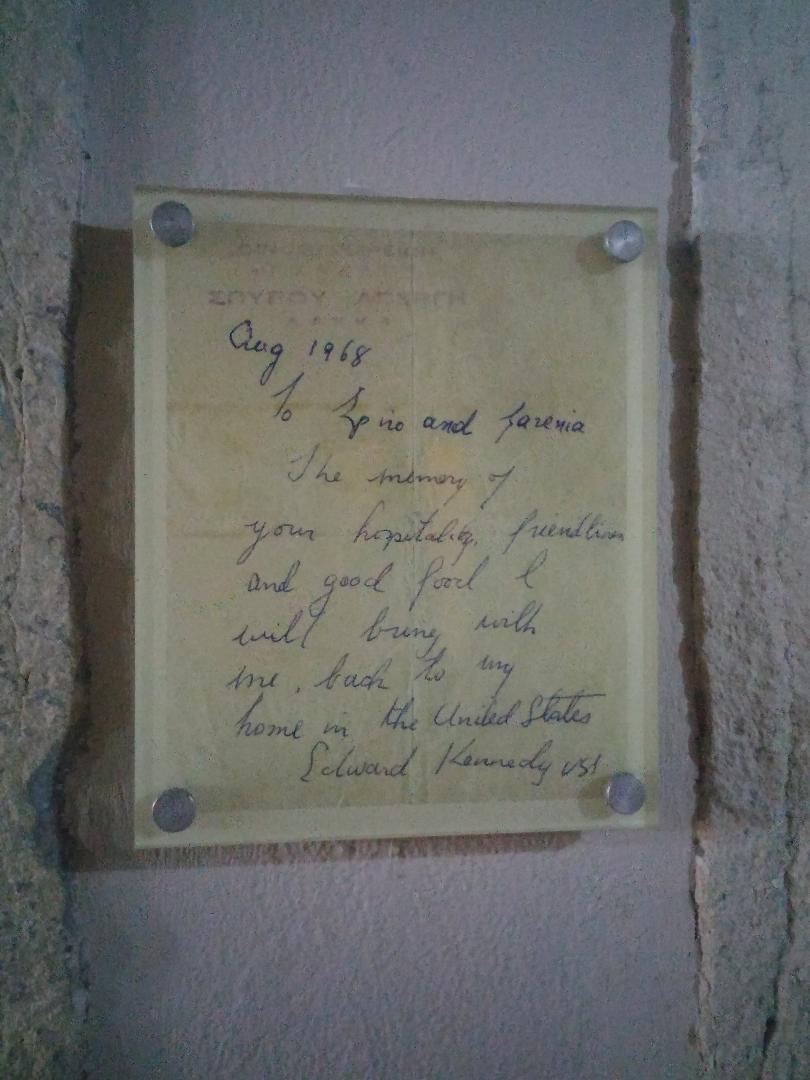 Aug 1968
To Spiro and
The memory of
your hospitality, friendliness
and good food I
will bring with
me, back to my
home in the United States
Edward Kennedy